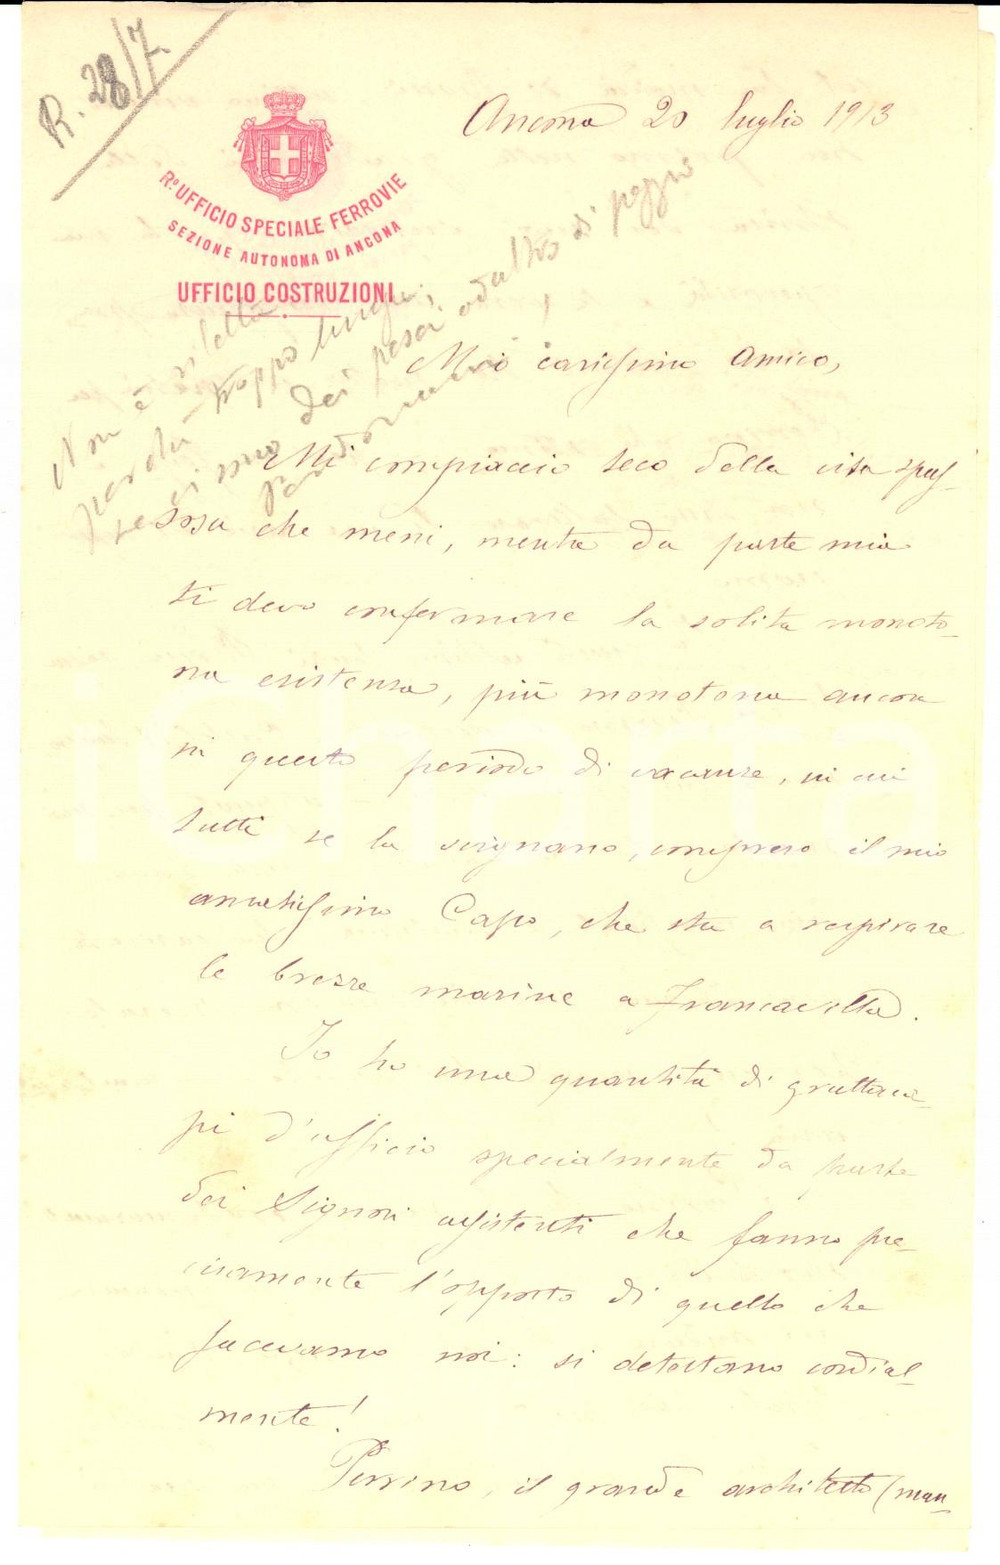 R. 28/7
Ancona 20 luglio 1913
R.º UFFICIO SPECIALE FERROVIE
SEZIONE AUTONOMA DI ANCONA
UFFICIO COSTRUZIONI
Non è
perchè troppo lunga;
ci sono dei pesci
Mio carissimo Amico,
Mi compiaccio teco della vita spas-
sosa che meni, mentre da parte mia
ti devo confermare la solita monoto-
na esistenza, più monotona ancora
in questo periodo di vacanze, in cui
tutti se la svignano, compreso il mio
amatissimo Capo, che sta a respirare
le brezze marine a Francavilla.
Io ho una quantità di grattaca-
pi d'ufficio specialmente da parte
dei Signori assistenti che fanno pre-
cisamente l'opposto di quello che
facevamo noi: si detestano cordial-
mente!
Perrino, il grande architetto (man-